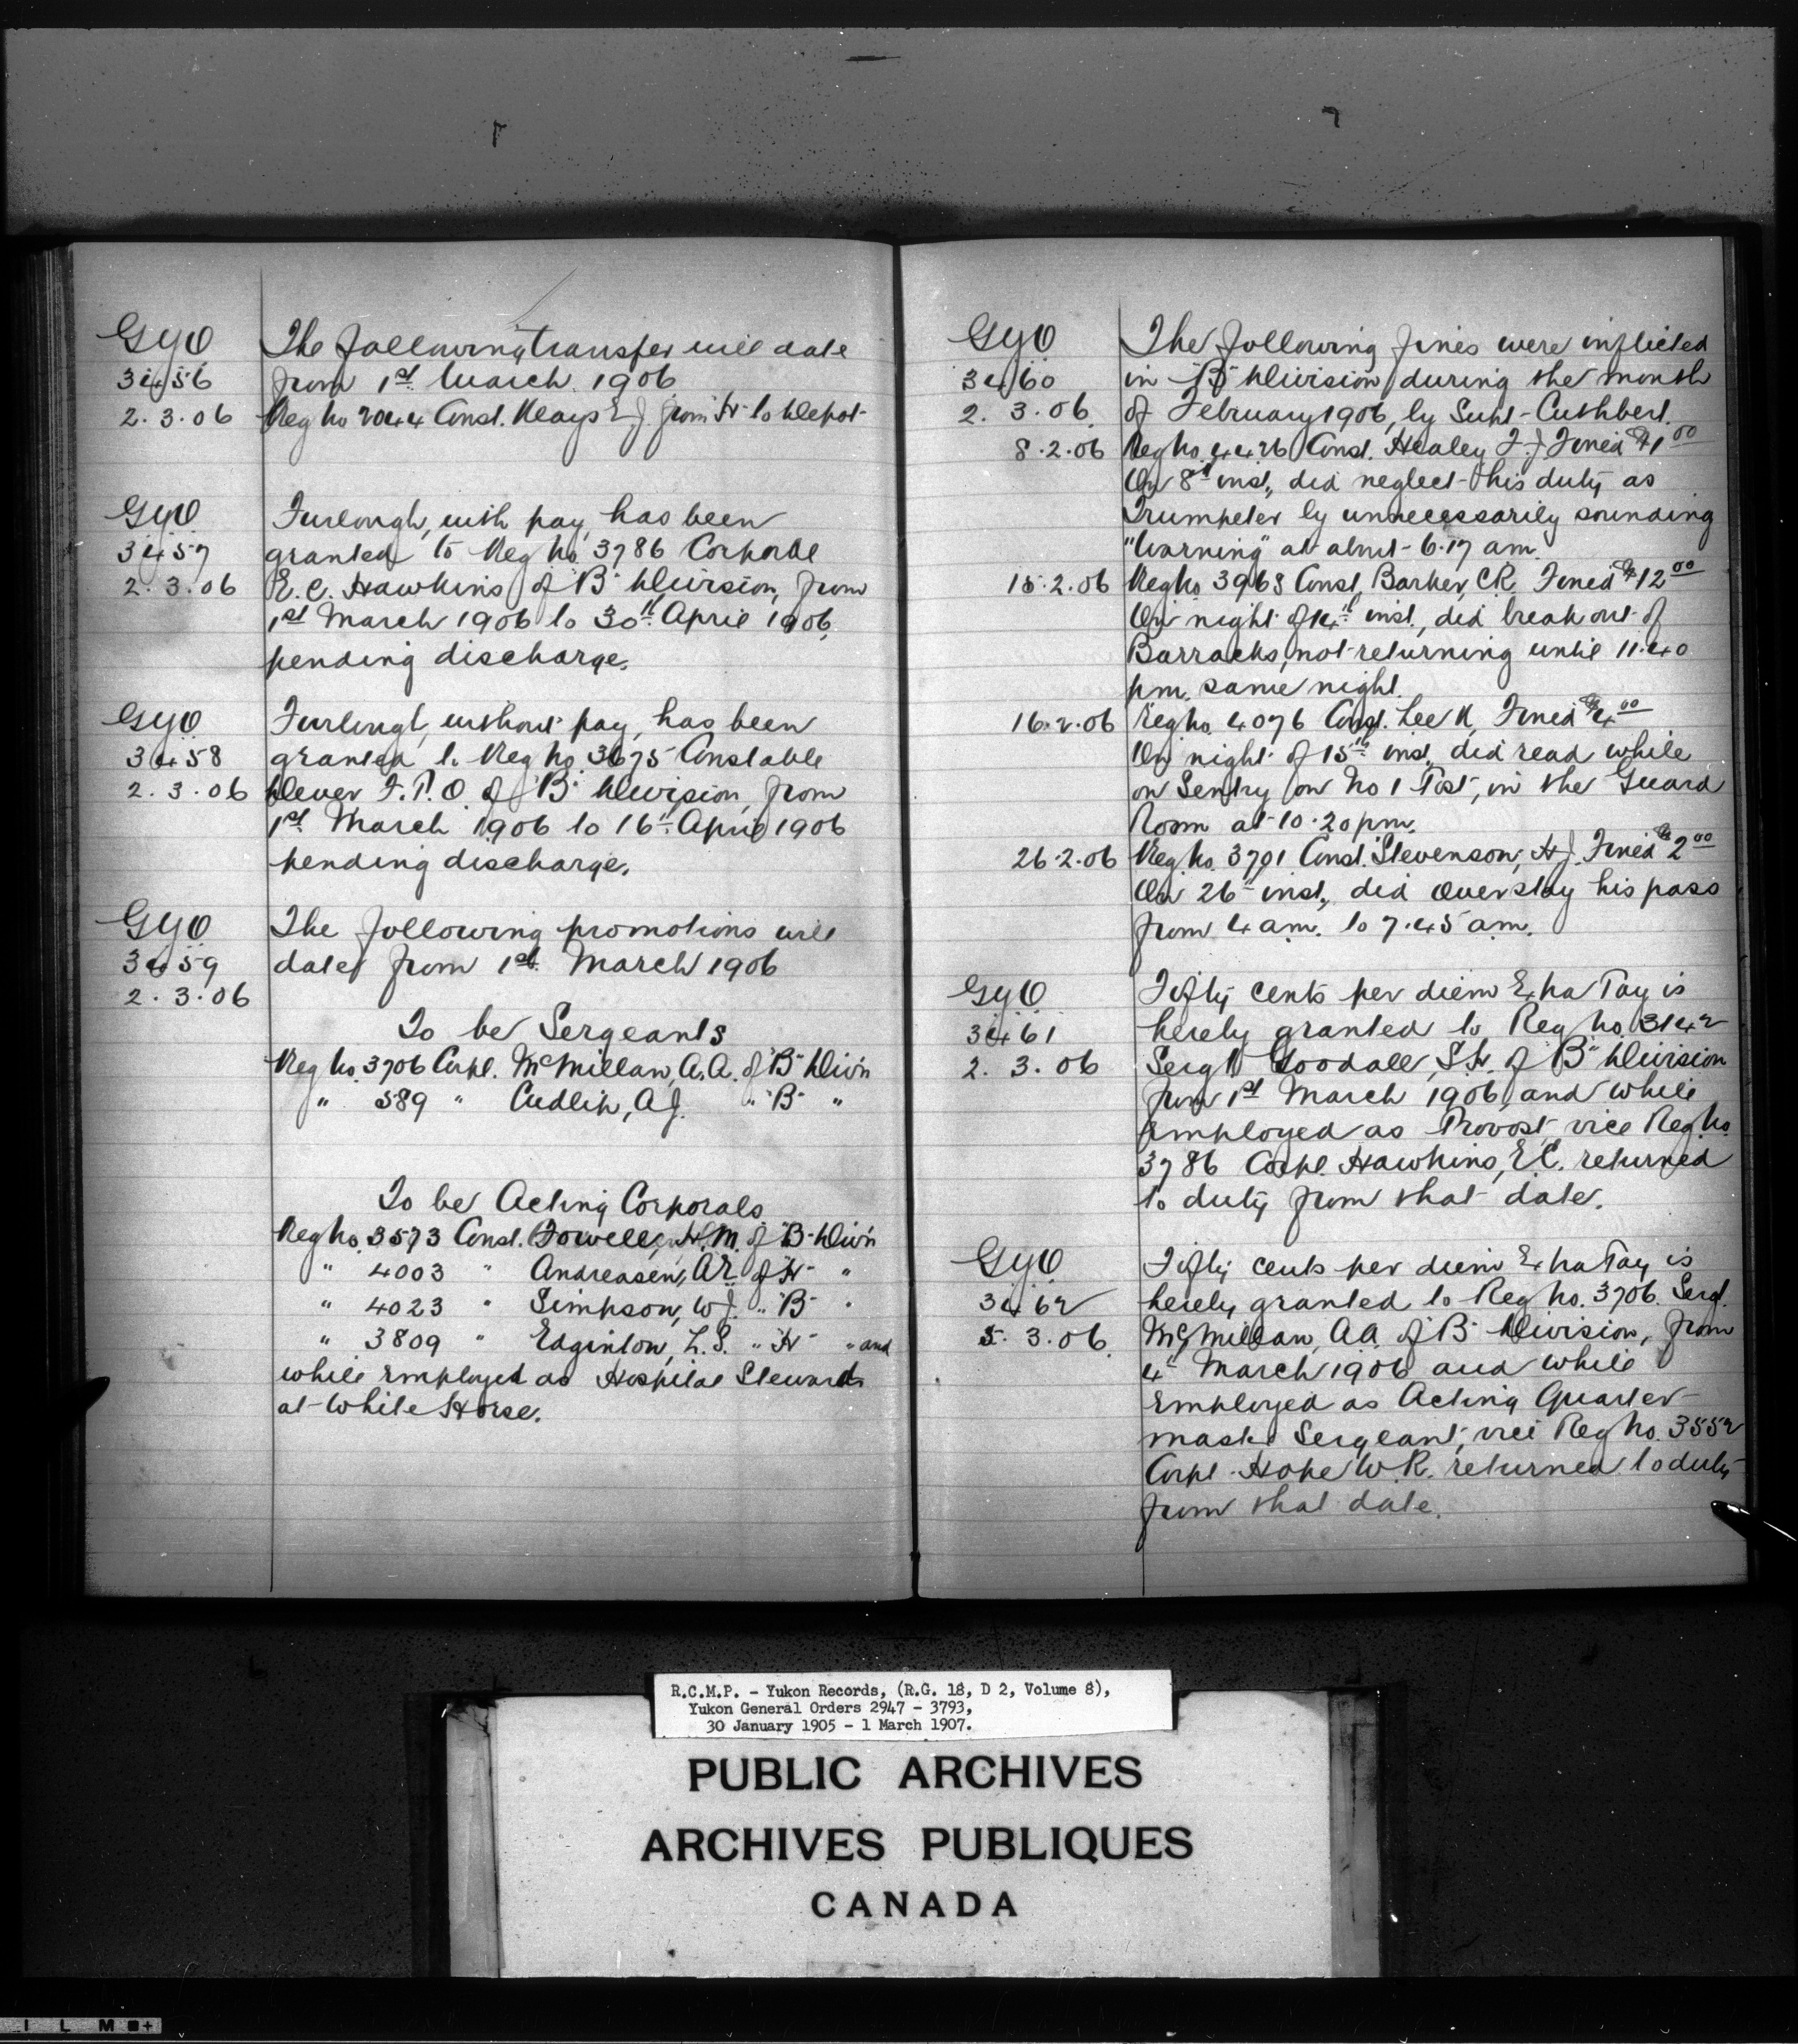 GYO
3456
2.3.06
The following transfer will date
from 1st March 1906
Reg No 2044 Const. Keays E.J. from "H" to Depot
GYO
3457
2.3.06
Furlough, with pay, has been
granted to Reg No. 3786 Corporal
E.C. Hawkins of "B" Division, from
1st March 1906 to 30th April 1906,
pending discharge.
GYO
3458
2.3.06
Furlough, without pay, has been
granted to Reg No. 3675 Constable
F.P.O. of "B" Division, from
1st March 1906 to 16th April 1906
pending discharge.
GYO
3459
2.3.06
The following promotions will
date from 1st March 1906
To be Sergeants
Reg No. 3706 Corpl. McMillan, A.A. of "B" Div'n
" 589 " Cudlip, A.J. " "B" "
To be Acting Corporals
Reg No. 3573 Const. Fowell, H.M. of "B" Div'n
" 4003 " Andreasen, A.E. of "H" "
" 4023 " Simpson, W.J. " "B" "
" 3809 " Edginton, L.S. " "H" " and
while employed as Hospital Steward
at White Horse.
GYO
3460
2.3.06.
The following fines were inflicted
in "B" Division during the month
of February 1906, by Supt. Cuthbert.
8.2.06 Reg No. 4426 Const. Healey F.J. Fined $1.00
On 8th inst., did neglect his duty as
Trumpeter by unnecessarily sounding
"Warning" at about 6.17 am.
15.2.06 Reg No. 3968 Const. Barker, C.R. Fined $12.00
On night of 14th inst., did break out of
Barracks, not returning until 11.40
pm. same night.
16.2.06 Reg No. 4076 Const. Lee Fined $4.00
On night of 15th inst., did read while
on Sentry on No 1 Post, in the Guard
Room at 10.20 pm.
26.2.06 Reg No. 3701 Const. Stevenson, H.J. Fined $2.00
On 26th inst., did overstay his pass
from 4 am. to 7.45 am.
GYO
3461
2.3.06
Fifty cents per diem Extra Pay is
hereby granted to Reg No. 3142
Sergt Goodall, S.H. of "B" Division
from 1st March 1906, and while
employed as Provost, vice Reg. No.
3786 Corpl. Hawkins, E.C. returned
to duty from that date.
GYO
3462
5.3.06.
Fifty cents per diem Extra Pay is
hereby granted to Reg No. 3706. Sergt.
McMillan, A.A. of "B" Division, from
4th March 1906 and while
employed as Acting Quarter
master Sergeant, vice Reg No. 3552
Corpl. Hope W.R. returned to duty
from that date.
R.C.M.P. - Yukon Records, (R.G. 18, D 2, Volume 8),
Yukon General Orders 2947 - 3793,
30 January 1905 - 1 March 1907.
PUBLIC ARCHIVES
ARCHIVES PUBLIQUES
CANADA
I L M